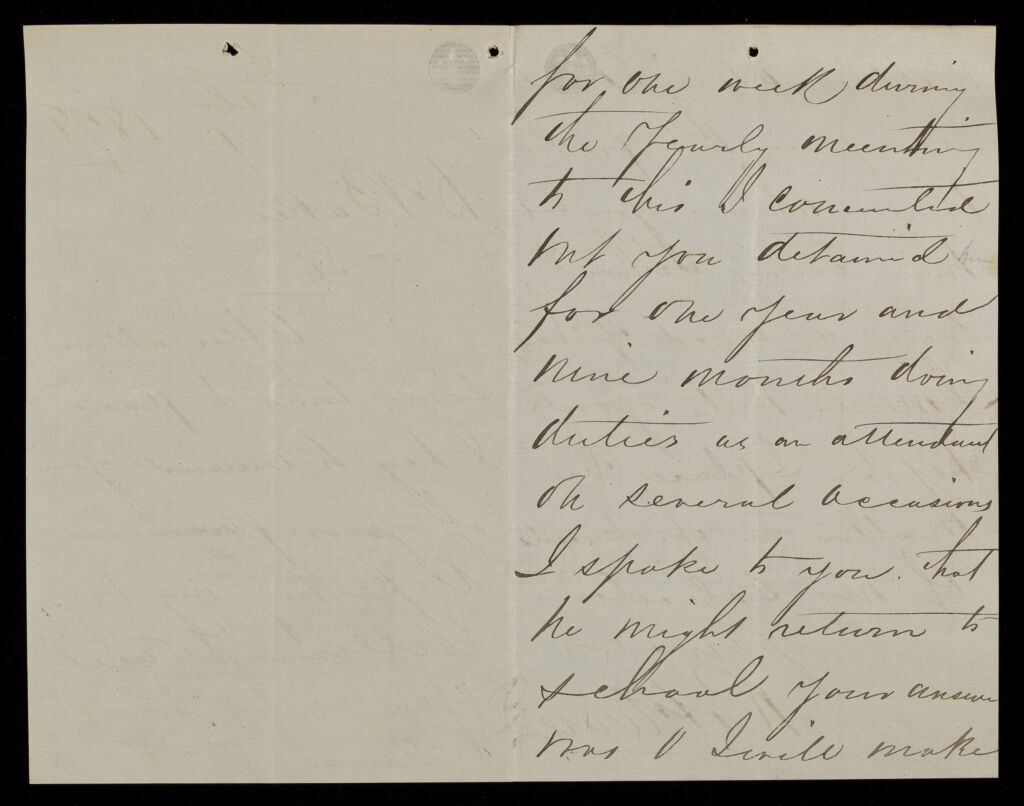 for one week during
the Yearly meenting
to this I concented
but you detained
for one year and
nine months doing
duties as an attendant
on several occasions
I spoke to you that
he might return to
school your answer
was O I will make